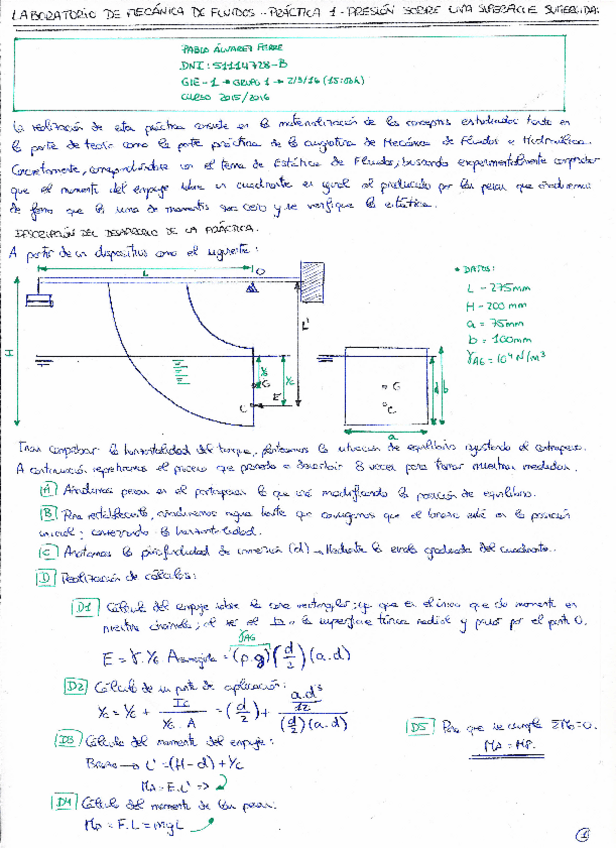 LABORATORIO DE MECÁNICA DE FLUIDOS - PRÁCTICA 1 - PRESIÓN SOBRE UNA SUPERFICIE SUMERGIDA.
PABLO ÁLVAREZ
DNI: 51114728-B
GIE-1 → GRUPO 1 → 2/3/16 (15:00h)
CURSO 2015/2016
La realización de esta práctica consiste en la materialización de los conceptos estudiados tanto en
la parte de teoría como la parte práctica de la asignatura de Mecánica de Fluidos e Hidráulica.
Concretamente, correspondiéndose con el tema de Estática de Fluidos, buscando experimentalmente comprobar
que el momento del empuje sobre un cuadrante es igual al producido por las pesas que añadiremos
de forma que la suma de momentos sea cero y se verifique la estática.
DESCRIPCIÓN DEL DESARROLLO DE LA PRÁCTICA.
A partir de un dispositivo como el siguiente:
L
O
H
L'
G
C
E
Yc
G
C
d
b
a
• DATOS:
L - 275mm
H - 200 mm
a = 75mm
b = 100mm
γAG = 10⁴ N/m³
Tras comprobar la horizontalidad del tanque, fijamos la situación de equilibrio ajustando el contrapeso.
A continuación repetiremos el proceso que procedo a describir 8 veces para tomar nuestras medidas.
A Añadimos pesas en el portapesas lo que irá modificando la posición de equilibrio.
B Para restablecerlo, añadiremos agua hasta que consigamos que el brazo esté en la posición
inicial; conservando la horizontalidad.
C Anotamos la profundidad de inmersión (d) → Mediante la escala graduada del cuadrante.
D Realización de cálculos:
D1 Cálculo del empuje sobre la cara rectangular; ya que es el único que da momento en
nuestro; al ser el ⊥ a la superficie tórica radial y pasar por el punto O.
γAG
E = γ.YG Amojada = (ρ.g)(d/2)(a.d)
D2 Cálculo de su punto de aplicación:
Yc = YG + Ic/(YG.A) = (d/2) + (a.d³/12)/((d/2)(a.d))
D3 Cálculo del momento del empuje:
Brazo → L' = (H-d) + Yc
MA = E.L' =>
D4 Cálculo del momento de las pesas:
MP = F.L = mgL
D5 Para que se cumpla ΣMo=0.
MA = MP.
1